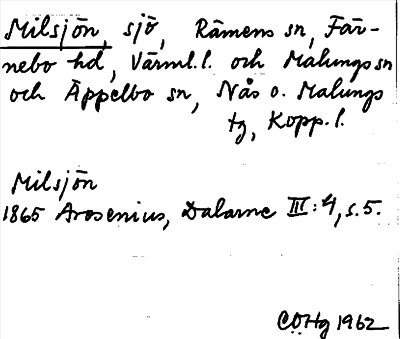 Milsjön, sjö, Rämens sn, Fär-
nebo hd, Värml. l. och Malungs sn
och Äppelbo sn, Nås o. Malungs
tg, Kopp. l.
Milsjön
1865 Arosenius, Dalarne III:4, s. 5.
COHg 1962